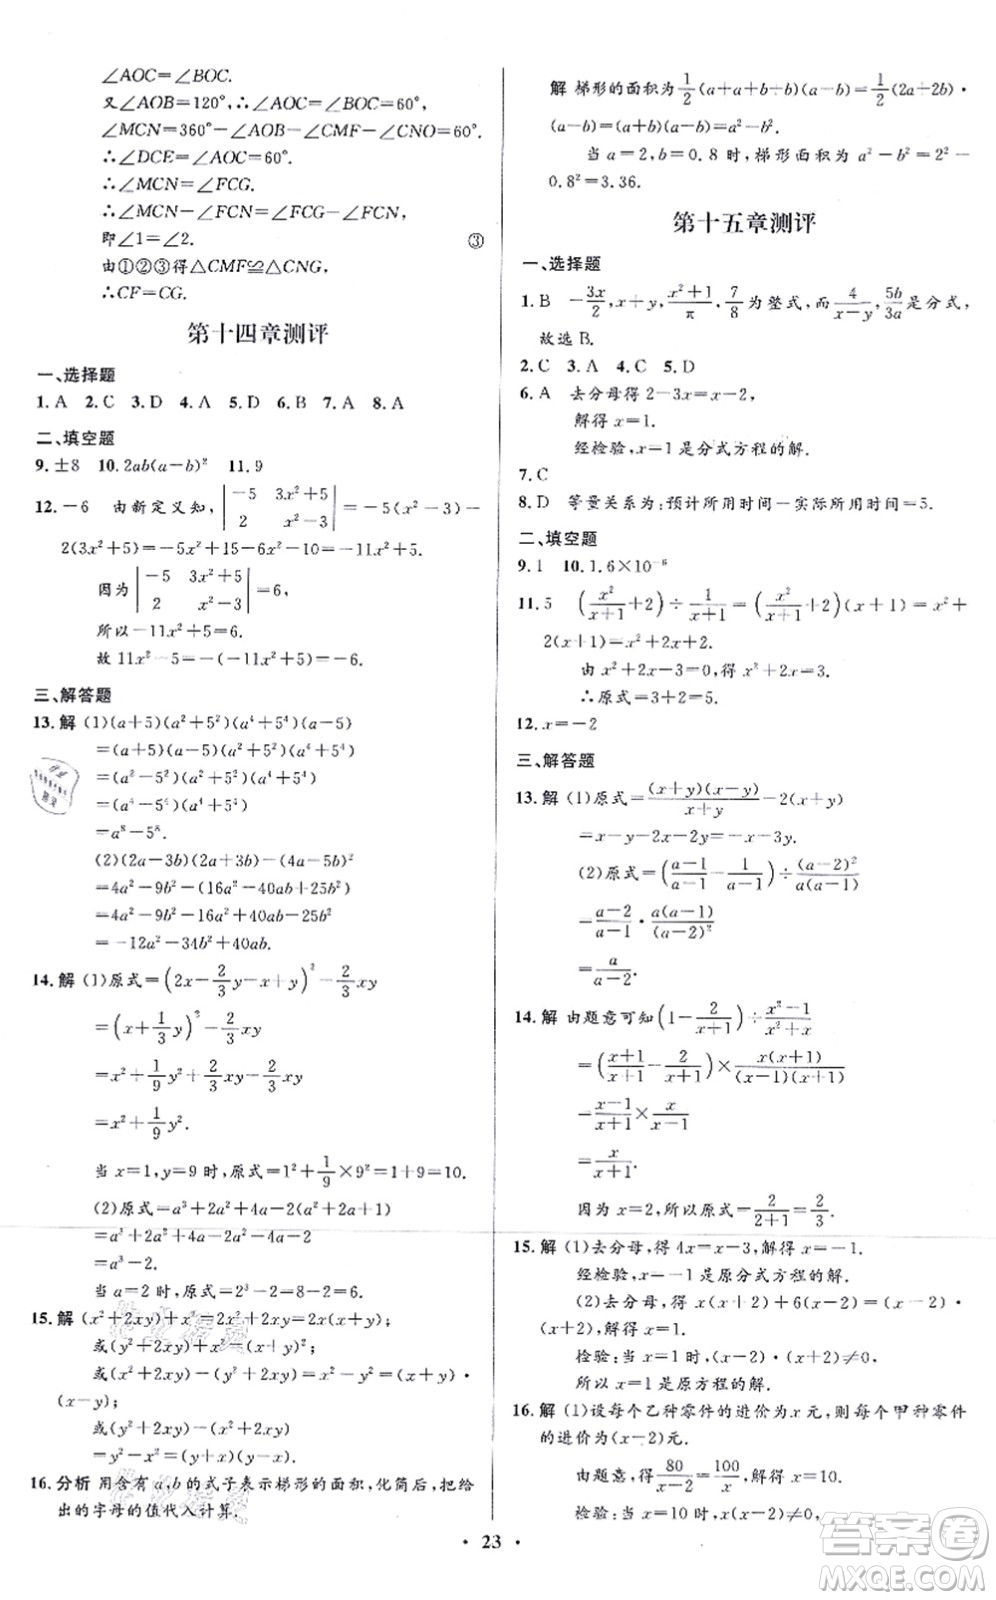 ∠AOC=∠BOC.
又∠AOB=120°,∴∠AOC=∠BOC=60°,
∠MCN=360°-∠AOB-∠CMF-∠CNO=60°.
∴∠DCE=∠AOC=60°.
∴∠MCN=∠FCG.
∴∠MCN-∠FCN=∠FCG-∠FCN,
即∠1=∠2. ③
由①②③得△CMF≌△CNG.
∴CF=CG.
第十四章测评
一、选择题
1. A 2. C 3. D 4. A 5. D 6. B 7. A 8. A
二、填空题
9. ±8 10. 2ab(a-b)² 11. 9
12. -6 由新定义知,|-5 3x²+5; 2 x²-3|=-5(x²-3)-
2(3x²+5)=-5x²+15-6x²-10=-11x²+5.
因为|-5 3x²+5; 2 x²-3|=6,
所以-11x²+5=6.
故 11x²-5=-(-11x²+5)=-6.
三、解答题
13. 解 (1)(a+5)(a²+5²)(a⁴+5⁴)(a-5)
=(a+5)(a-5)(a²+5²)(a⁴+5⁴)
=(a²-5²)(a²+5²)(a⁴+5⁴)
=(a⁴-5⁴)(a⁴+5⁴)
=a⁸-5⁸.
(2)(2a-3b)(2a+3b)-(4a-5b)²
=4a²-9b²-(16a²-40ab+25b²)
=4a²-9b²-16a²+40ab-25b²
=-12a²-34b²+40ab.
14. 解 (1)原式=(2x-2/3y-x+y)²-2/3xy
=(x+1/3y)²-2/3xy
=x²+1/9y²+2/3xy-2/3xy
=x²+1/9y².
当 x=1,y=9 时,原式=1²+1/9×9²=10.
(2)原式=a³+2a²-2(a²+2a+1)
=a³+2a²-2a²-4a-2
=a³-4a-2.
当 a=2 时,原式=2³-2-8=2-6=
15. 解 (x²+2xy)+x²=2x²+2xy=2x(x+y);
或(y²+2xy)+x²=(x+y)²;
或(x²+2xy)-(y²+2xy)=x²-y²=(x+y)·
(x-y);
或(y²+2xy)-(x²+2xy)
=y²-x²=(y+x)(y-x).
16. 分析 用含有 a,b 的式子表示梯形的面积,化简后,把给
出的字母的值代入计算.
解 梯形的面积为1/2(a+a+b+b)(a-b)=1/2(2a+2b)·
(a-b)=(a+b)(a-b)=a²-b².
当 a=2,b=0.8 时,梯形面积为 a²-b²=2²-
0.8²=3.36.
第十五章测评
一、选择题
1. B -3x/2,x+y,(x²+1)/π,7/8 为整式,而 4/(x-y),5b/3a是分式,
故选 B.
2. C 3. A 4. C 5. D
6. A 去分母得 2-3x=x-2,
解得 x=1.
经检验,x=1 是分式方程的解.
7. C
8. D 等量关系为:预计所用时间-实际所用时间=5.
二、填空题
9. 1 10. 1.6×10⁻⁶
11. 5 (x²/(x+1)+2)÷1/(x+1)=(x²/(x+1)+2)(x+1)=x²+
2(x+1)=x²+2x+2.
由 x²+2x-3=0,得 x²+2x=3.
∴原式=3+2=5.
12. x=-2
三、解答题
13. 解 (1)原式=(x+y)(x-y)/(x+y)-2(x+y)
=x-y-2x-2y=-x-3y.
(2)原式=((a-1)/(a-1)-1/(a-1))÷(a-2)²/(a(a-1))
=(a-2)/(a-1)·a(a-1)/(a-2)²
=a/(a-2).
14. 解 由题意可知(1-2/(x+1))÷(x²-1)/(x²+x)
=((x+1)/(x+1)-2/(x+1))×x(x+1)/((x-1)(x+1))
=(x-1)/(x+1)×x/(x-1)
=x/(x+1).
因为 x=2,所以原式=2/(2+1)=2/3.
15. 解 (1)去分母,得 4x=x-3,解得 x=-1.
经检验,x=-1 是原分式方程的解.
(2)去分母,得 x(x+2)+6(x-2)=(x-2)·
(x+2),解得 x=1.
检验:当 x=1 时,(x+2)(x-2)≠0,
所以 x=1 是原方程的解.
16. 解 (1)设每个乙种零件的进价为 x 元,则每个甲种零件
的进价为(x-2)元.
由题意,得80/(x-2)=100/x,解得 x=10.
检验:当 x=10 时,x(x-2)≠0,
• 23 •
答案卷
MXQE.COM